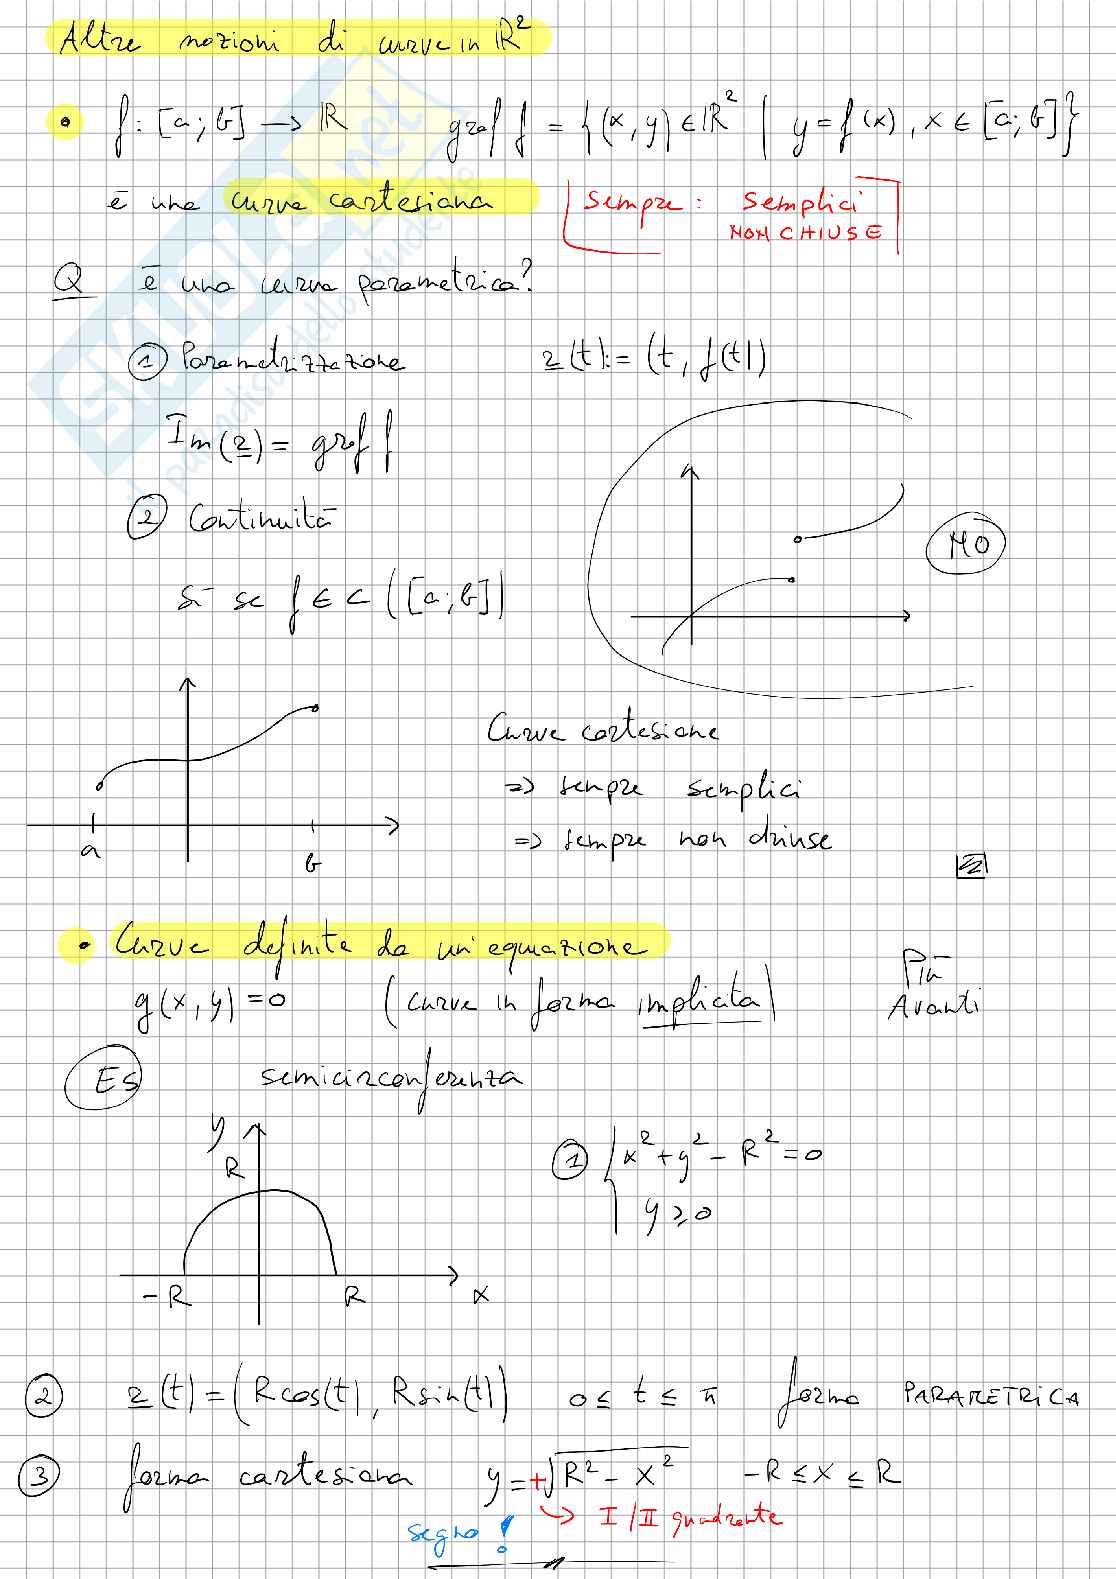 Altre nozioni di curve in ℝ²
• f: [a;b] → ℝ graf f = {(x,y) ∈ ℝ² | y = f(x), x ∈ [a;b]}
è una curva cartesiana [Sempre: semplici
NON CHIUSE]
Q è una curva parametrica?
① Parametrizzazione r(t):= (t, f(t))
Im(r) = graf f
② Continuità
NO
sì se f ∈ C([a;b])
Curve cartesiane
⇒ sempre semplici
⇒ sempre non chiuse
a
b
• Curve definite da un'equazione
g(x,y) = 0 (curve in forma implicita) Più
Avanti
Es semicirconferenza
y
R
① { x² + y² - R² = 0
y ≥ 0
-R R x
② r(t) = (R cos(t), R sin(t)) 0 ≤ t ≤ π forma PARAMETRICA
③ forma cartesiana y = +√(R² - x²) -R ≤ x ≤ R
→ I/II quadrante
segno!
SKUOLA.net
il paradiso dello studente